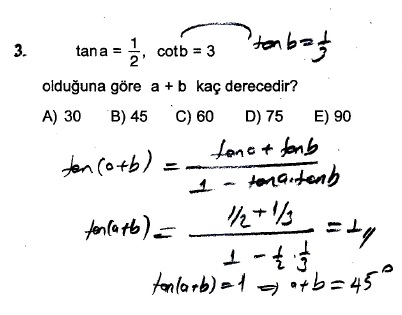 3. tan a = 1/2, cotb = 3 tanb = 1/3
olduğuna göre a + b kaç derecedir?
A) 30 B) 45 C) 60 D) 75 E) 90
tan(a+b) = tana + tanb / 1 - tana.tanb
tan(a+b) = 1/2 + 1/3 / 1 - 1/2 . 1/3 = 1//
tan(a+b) = 1 ⇒ a+b = 45°